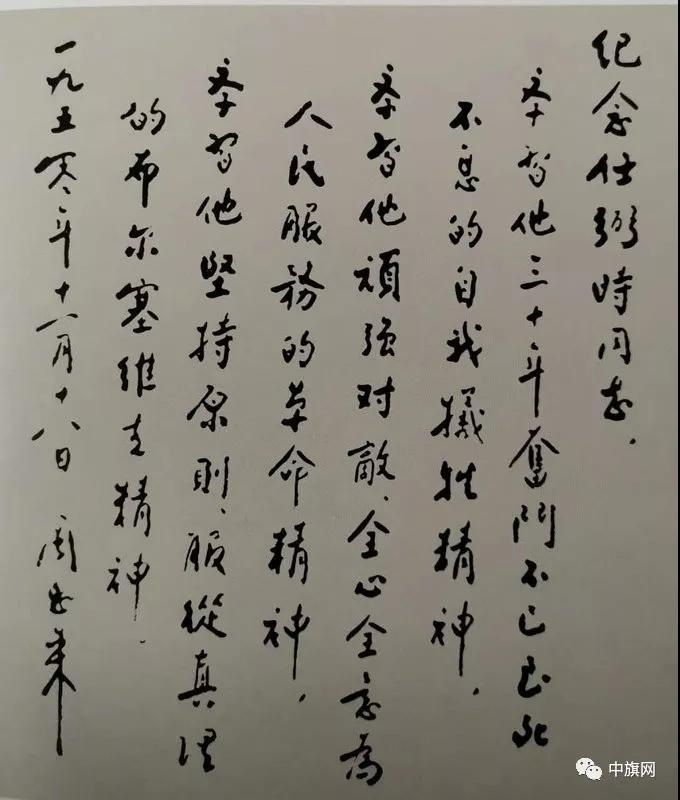 纪念任弼時同志，
学習他三十年奮鬥不已至死
不息的自我犧牲精神，
学習他頑强对敵、全心全意為
人民服務的革命精神，
学習他堅持原則、服從真理
的布尔塞維克精神．
一九五零年十二月十八日 周恩来
中旗网